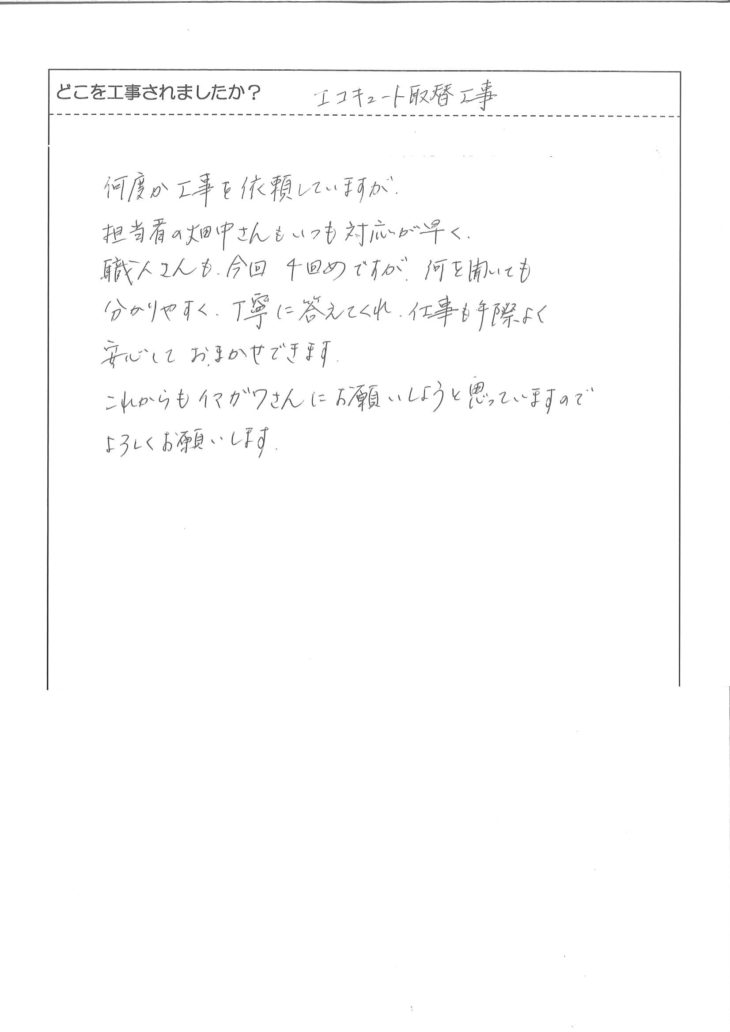 どこを工事されましたか？ エコキュート取替工事
何度か工事を依頼していますが、
担当者の畑中さんもいつも対応が早く、
職人さんも、今回4回めですが、何を聞いても
分かりやすく、丁寧に答えてくれ、仕事も手際よく
安心しておまかせできます。
これからもイマガワさんにお願いしようと思っていますので
よろしくお願いします。